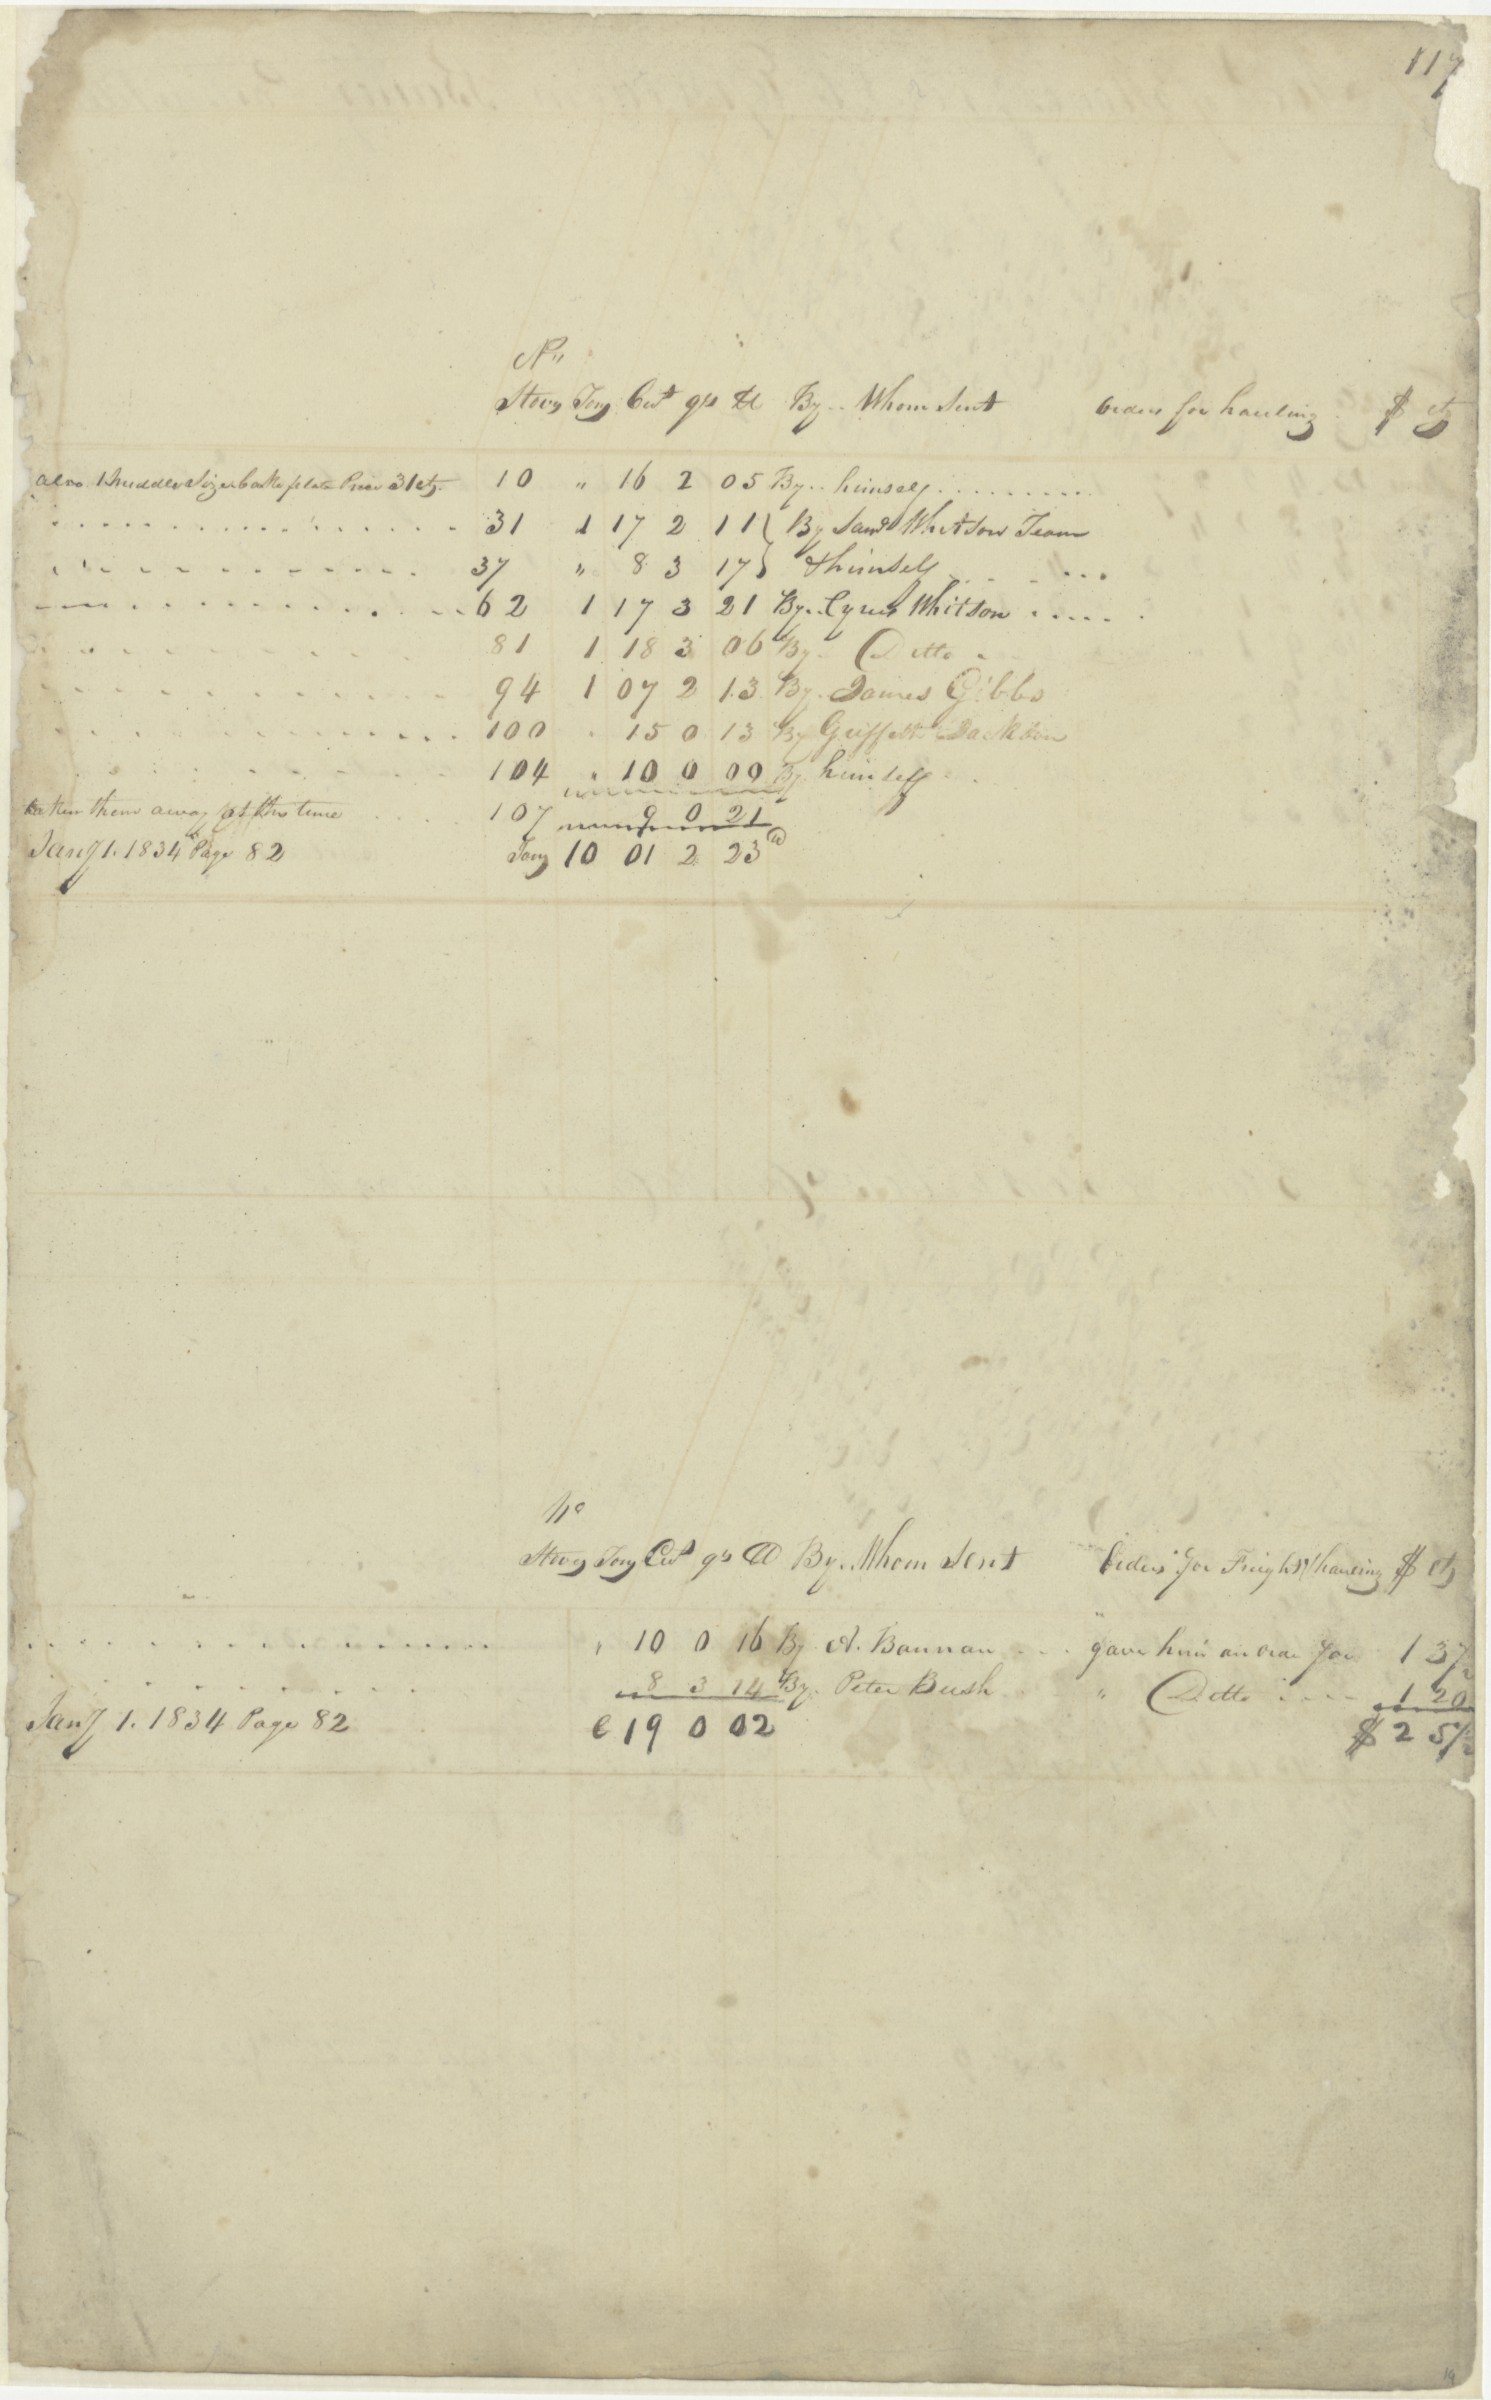 117
No
Stoves Tons Cwt qrs lb By.. Whom Sent orders for hauling $ cts
also 1 midder Size bake plate Price 31 cts. 10 " 16 2 05 By.. himself ..........
31 1 17 2 11 } By Saml Whitson Team
37 " 8 3 17 } & himself
62 1 17 3 21 By. Cyrus Whitson .....
81 1 18 3 06 By. Ditto
94 1 07 2 13 By. James Gibbs
100 " 15 0 13 By Griffith Jackson
104 " 10 0 00 By himself
taken them away at this time .... 107 9 0 21
Jany 1. 1834 Page 82 Tons 10 01 2 23 lb
No
Stoves Tons Cwt qrs lb By.. Whom Sent Orders for Freight / hauling $ cts
" 10 0 16 By A. Bannan ... gave him an order for 1 37
8 3 14 By. Peter Bush " Ditto .... 1 20
Jany 1. 1834 Page 82 C 19 0 02 $ 2 57
14